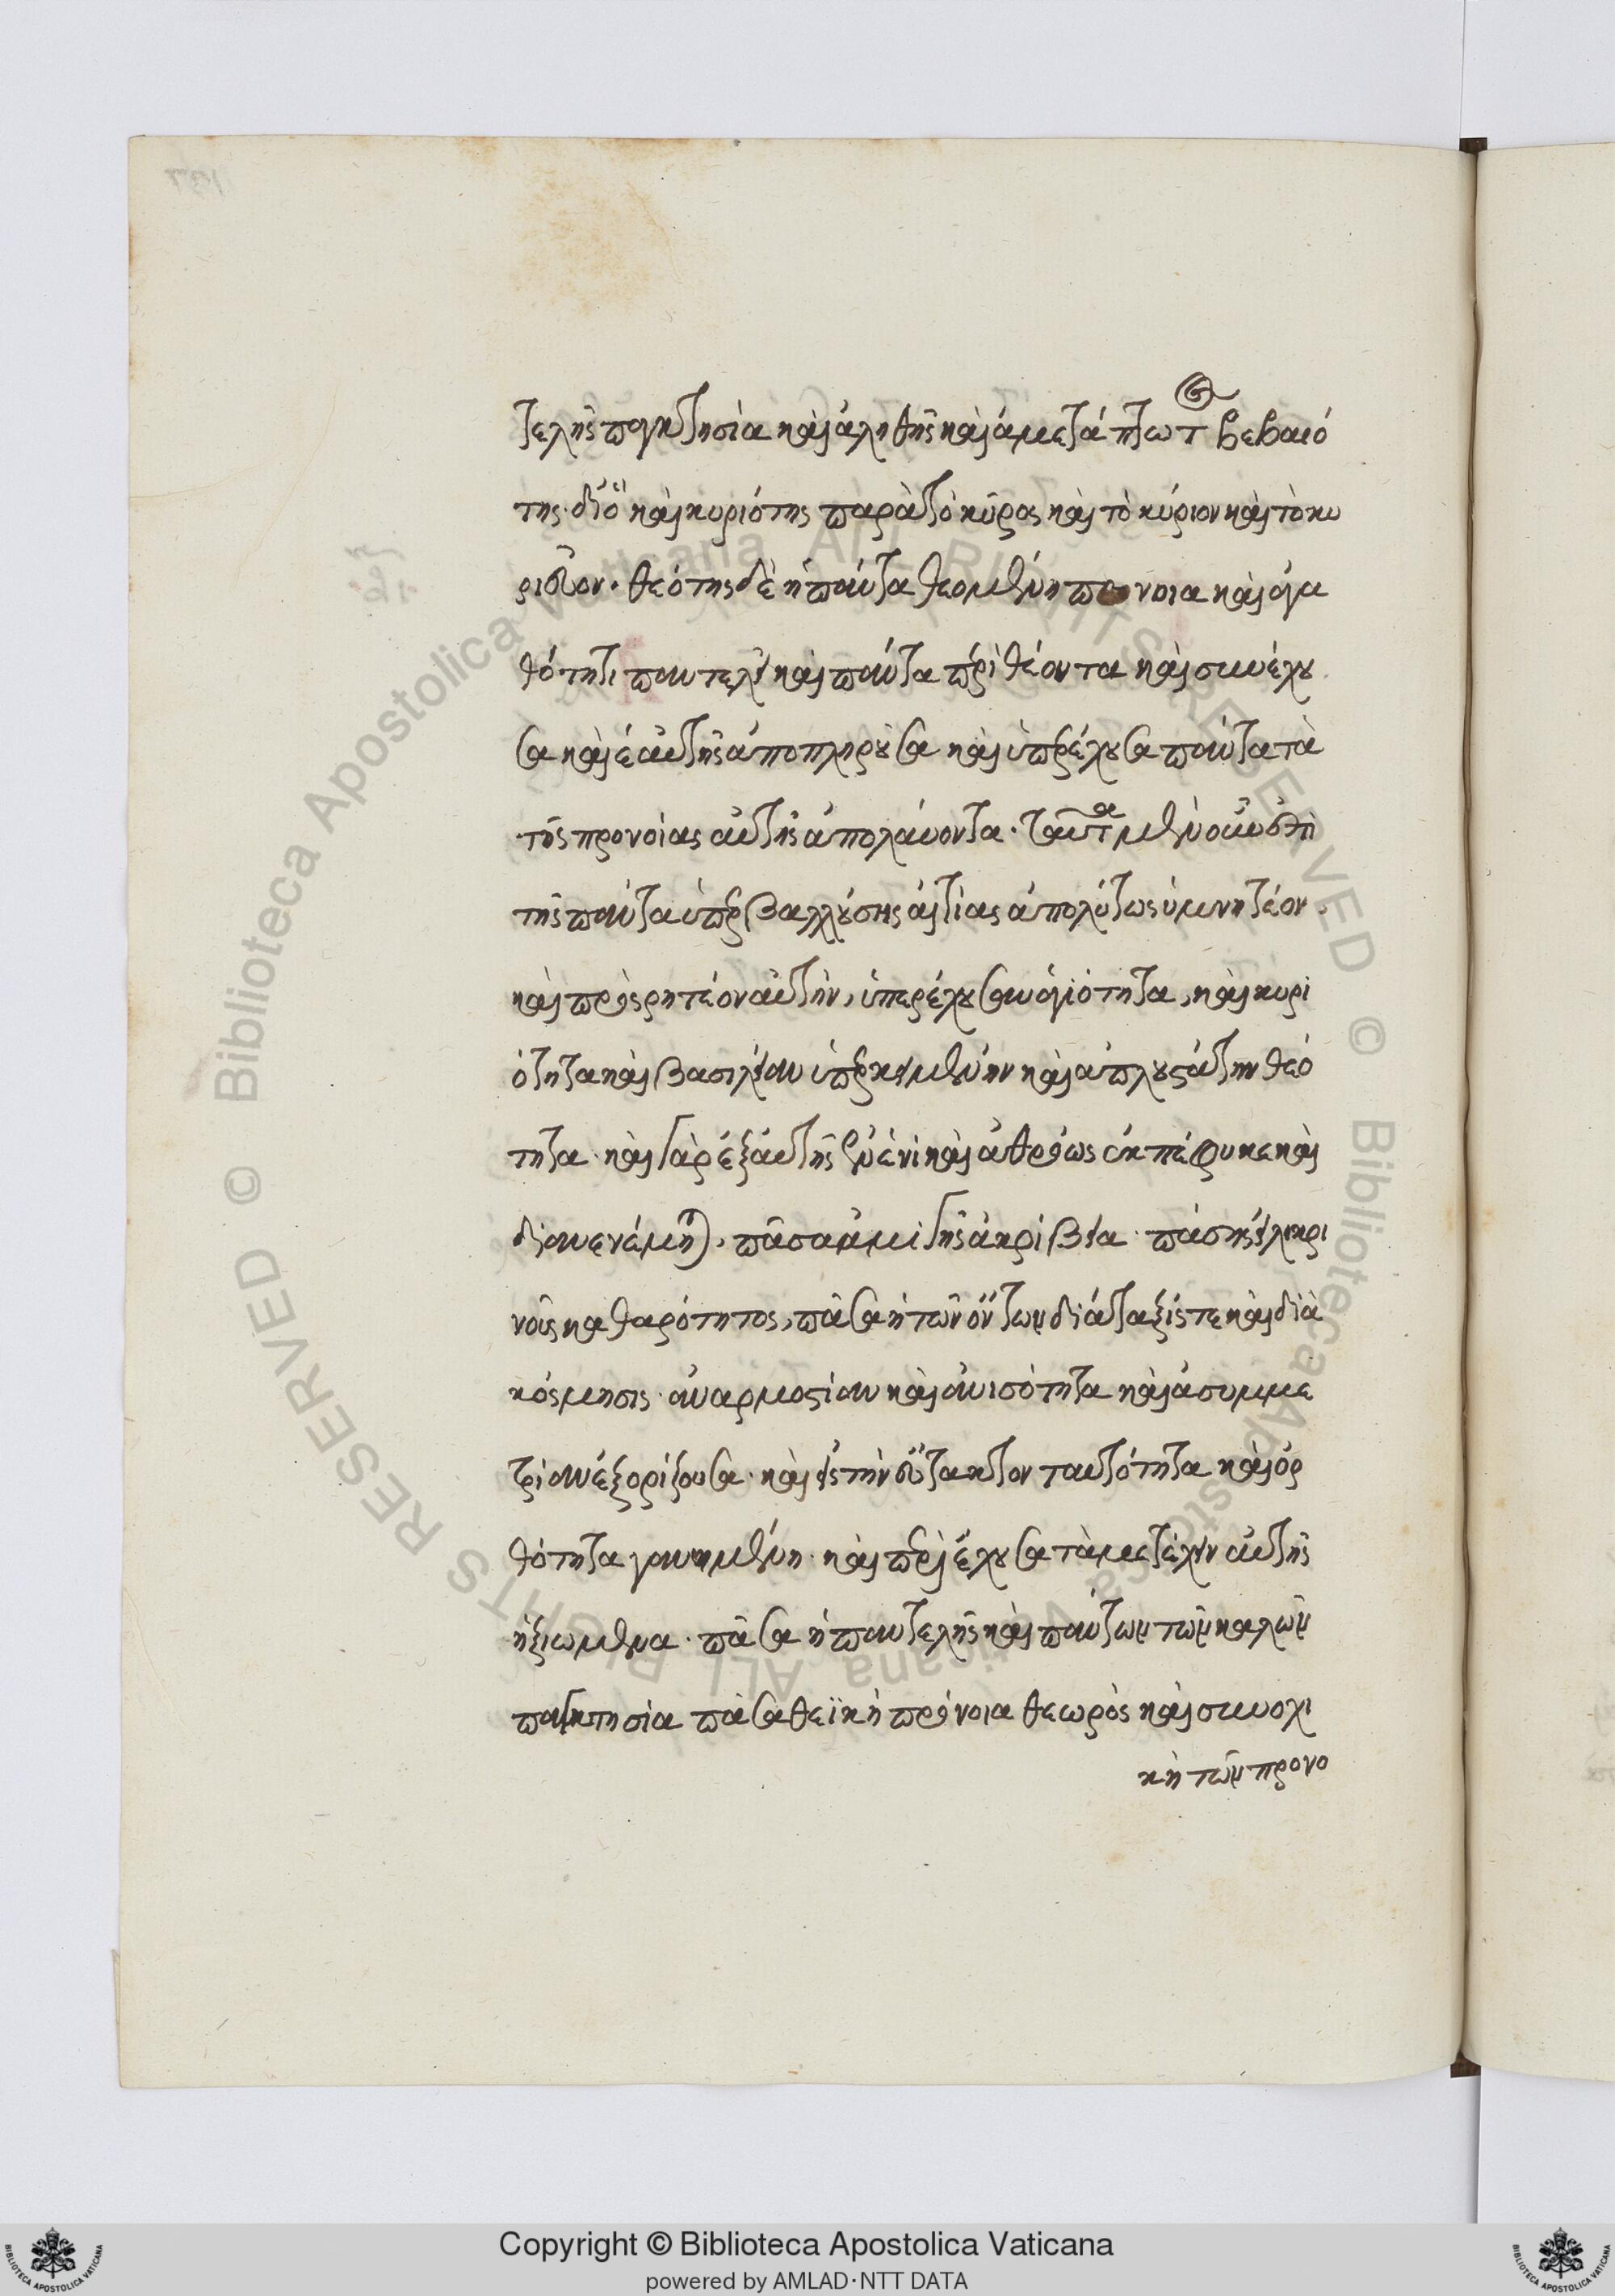 τελὴς παγκτησία καὶ ἀληθὴς καὶ ἀμετάπτωτος βεβαιό
της· διὸ καὶ κυριότης παρὰ τὸ κῦρος καὶ τὸ κύριον καὶ τὸ κυ
ριεῦον. θεότης δὲ ἡ πάντα θεομένη πρόνοια καὶ ἀγα
θότητι παντελεῖ καὶ πάντα περιθέοντα καὶ συνέχου
σα καὶ ἑαυτῆς ἀποπληροῦσα καὶ ὑπερέχουσα πάντα τὰ
τῆς προνοίας αὐτῆς ἀπολαύοντα. ταῦτα μὲν οὖν ἐπὶ
τῆς πάντα ὑπερβαλλούσης αἰτίας ἀπολύτως ὑμνητέον.
καὶ προσρητέον αὐτὴν, ὑπερέχουσαν ἁγιότητα, καὶ κυρι
ότητα καὶ βασιλείαν ὑπερκειμένην καὶ ἁπλουστάτην θεό
τητα. καὶ γὰρ ἐξ αὐτῆς ἐν ἑνὶ καὶ ἀθρόως ἐκπέφυκε καὶ
διανενέμηται, πᾶσα ἀμιγὴς ἀκρίβεια πάσης εἰλικρι
νοῦς καθαρότητος, πᾶσα ἡ τῶν ὄντων διάταξίς τε καὶ δια
κόσμησις ἀναρμοστίαν καὶ ἀνισότητα καὶ ἀσυμμε
τρίαν ἐξορίζουσα. καὶ εἰς τὴν εὔτακτον ταυτότητα καὶ ὀρ
θότητα γανυμένη. καὶ περιέχουσα τὰ μετέχειν αὐτῆς
ἠξιωμένα. πᾶσα ἡ παντελὴς καὶ πάντων τῶν καλῶν
παγκτησία πᾶσα θεϊκὴ πρόνοια θεωρὸς καὶ συνοχι
κὴ τῶν προνο